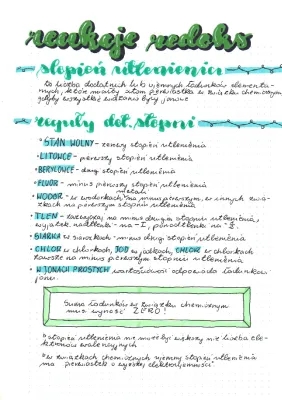 reakcje redoks
stopień utlenienia
to liczba dodatnich lub ujemnych ładunków elementa-
rnych, które miałby atom pierwiastka w związku chemicznym
gdyby wszystkie wiązania były jonowe
reguły dot. stopni
*STAN WOLNY - zerowy stopień utlenienia
*LITOWCE - pierwszy stopień utlenienia
*BERYLOWCE - drugi stopień utlenienia
*FLUOR - minus pierwszy stopień utlenienia
*WODÓR w wodorkach metali minus pierwszym, w innych zwią-
zkach na pierwszym stopniu utlenienia
*TLEN - zazwyczaj na minus drugim stopniu utlenienia,
wyjątek, nadtlenki - na -I, ponadtlenki - na -½
*SIARKA w siarczkach - minus drugi stopień utlenienia
*CHLOR w chlorkach, JOD w jodkach, CHLOR w chlorkach
zawsze na minus pierwszym stopniu utlenienia
*W JONACH PROSTYCH wartościowość odpowiada ładunkowi
jonu
Suma ładunków w związku chemicznym
musi wynosić ZERO!
*stopień utlenienia nie może być większy niż liczba ele-
ktronów walencyjnych
*w związkach chemicznych ujemny stopień utlenienia
ma pierwiastek o wyższej elektroujemności